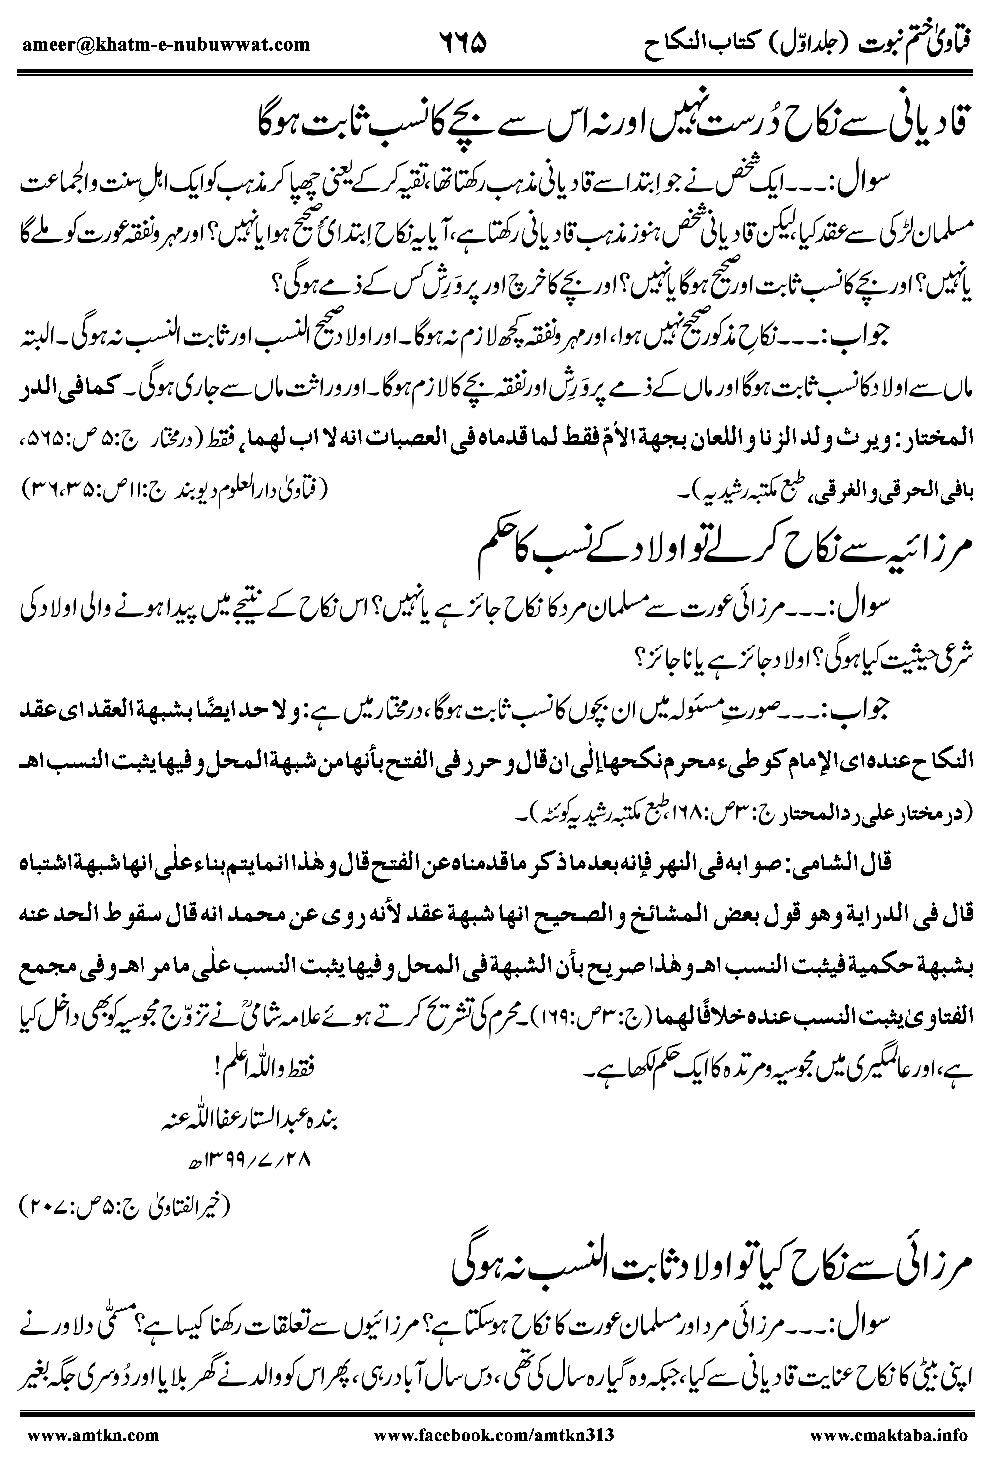 فتاویٰ ختم نبوت (جلد اوّل) کتاب النکاح ۶۶۵ ameer@khatm-e-nubuwwat.com
قادیانی سے نکاح دُرست نہیں اور نہ اس سے بچے کا نسب ثابت ہوگا
سوال:۔۔۔ایک شخص نے جو اِبتدا سے قادیانی مذہب رکھتا تھا، تقیہ کرکے یعنی چھپاکر مذہب کو ایک اہلِ سنت والجماعت
مسلمان لڑکی سے عقد کیا، لیکن قادیانی شخص ہنوز مذہب قادیانی رکھتا ہے، آیا یہ نکاح اِبتدائً صحیح ہوا یا نہیں؟ اور مہر ونفقہ عورت کو ملے گا
یا نہیں؟ اور بچے کا نسب ثابت اور صحیح ہوگا یا نہیں؟ اور بچے کا خرچ اور پروَرِش کس کے ذمے ہوگی؟
جواب:۔۔۔نکاحِ مذکور صحیح نہیں ہوا، اور مہر ونفقہ کچھ لازم نہ ہوگا۔ اور اولاد صحیح النسب اور ثابت النسب نہ ہوگی۔ البتہ
ماں سے اولاد کا نسب ثابت ہوگا اور ماں کے ذمے پروَرِش اور نفقہ بچے کا لازم ہوگا۔ اور وراثت ماں سے جاری ہوگی۔ کما فی الدر
المختار: ویرث ولد الزنا واللعان بجھۃ الأمّ فقط لما قدماہ فی العصبات انہ لا اب لھما، فقط (درمختار ج:۵ ص:۵۶۵،
بافی الحرقی والغرقی، طبع مکتبہ رشیدیہ)۔ (فتاویٰ دارالعلوم دیوبند ج:۱۱ ص:۳۶،۳۵)
مرزائیہ سے نکاح کرلے تو اولاد کے نسب کا حکم
سوال:۔۔۔مرزائی عورت سے مسلمان مرد کا نکاح جائز ہے یا نہیں؟ اس نکاح کے نتیجے میں پیدا ہونے والی اولاد کی
شرعی حیثیت کیا ہوگی؟ اولاد جائز ہے یا ناجائز؟
جواب:۔۔۔صورتِ مسئولہ میں ان بچوں کا نسب ثابت ہوگا، درمختار میں ہے: ولا حد ایضًا بشبھۃ العقد ای عقد
النکاح عندہ ای الإمام کوطیء محرم نکحھا إلٰی ان قال وحرر فی الفتح بأنھا من شبھۃ المحل وفیھا یثبت النسب اھـ
(درمختار علی ردالمحتار ج:۳ ص:۱۶۸، طبع مکتبہ رشیدیہ کوئٹہ)۔
قال الشامی: صوابہ فی النھر فإنہ بعد ما ذکر ما قدمناہ عن الفتح قال وھٰذا انما یتم بناء علٰی انھا شبھۃ اشتباہ
قال فی الدرایۃ وھو قول بعض المشائخ والصحیح انھا شبھۃ عقد لأنہ روی عن محمد انہ قال سقوط الحد عنہ
بشبھۃ حکمیۃ فیثبت النسب اھـ وھٰذا صریح بأن الشبھۃ فی المحل وفیھا یثبت النسب علٰی ما مر اھـ وفی مجمع
الفتاویٰ یثبت النسب عندہ خلافًا لھما (ج:۳ ص:۱۶۹)۔ محرم کی تشریح کرتے ہوئے علامہ شامیؒ نے تزوّج مجوسیہ کو بھی داخل کیا
ہے، اور عالمگیری میں مجوسیہ ومرتدہ کا ایک حکم لکھا ہے۔ فقط واللہ اعلم!
بندہ عبدالستار عفااللہ عنہ
۲۸؍۷؍۱۳۹۹ھ
(خیر الفتاویٰ ج:۵ ص:۲۰۷)
مرزائی سے نکاح کیا تو اولاد ثابت النسب نہ ہوگی
سوال:۔۔۔مرزائی مرد اور مسلمان عورت کا نکاح ہوسکتا ہے؟ مرزائیوں سے تعلقات رکھنا کیسا ہے؟ مسمّٰی دلاور نے
اپنی بیٹی کا نکاح عنایت قادیانی سے کیا، جبکہ وہ گیارہ سال کی تھی، دس سال آباد رہی، پھر اس کو والد نے گھر بلایا اور دُوسری جگہ بغیر
www.amtkn.com www.facebook.com/amtkn313 www.cmaktaba.info